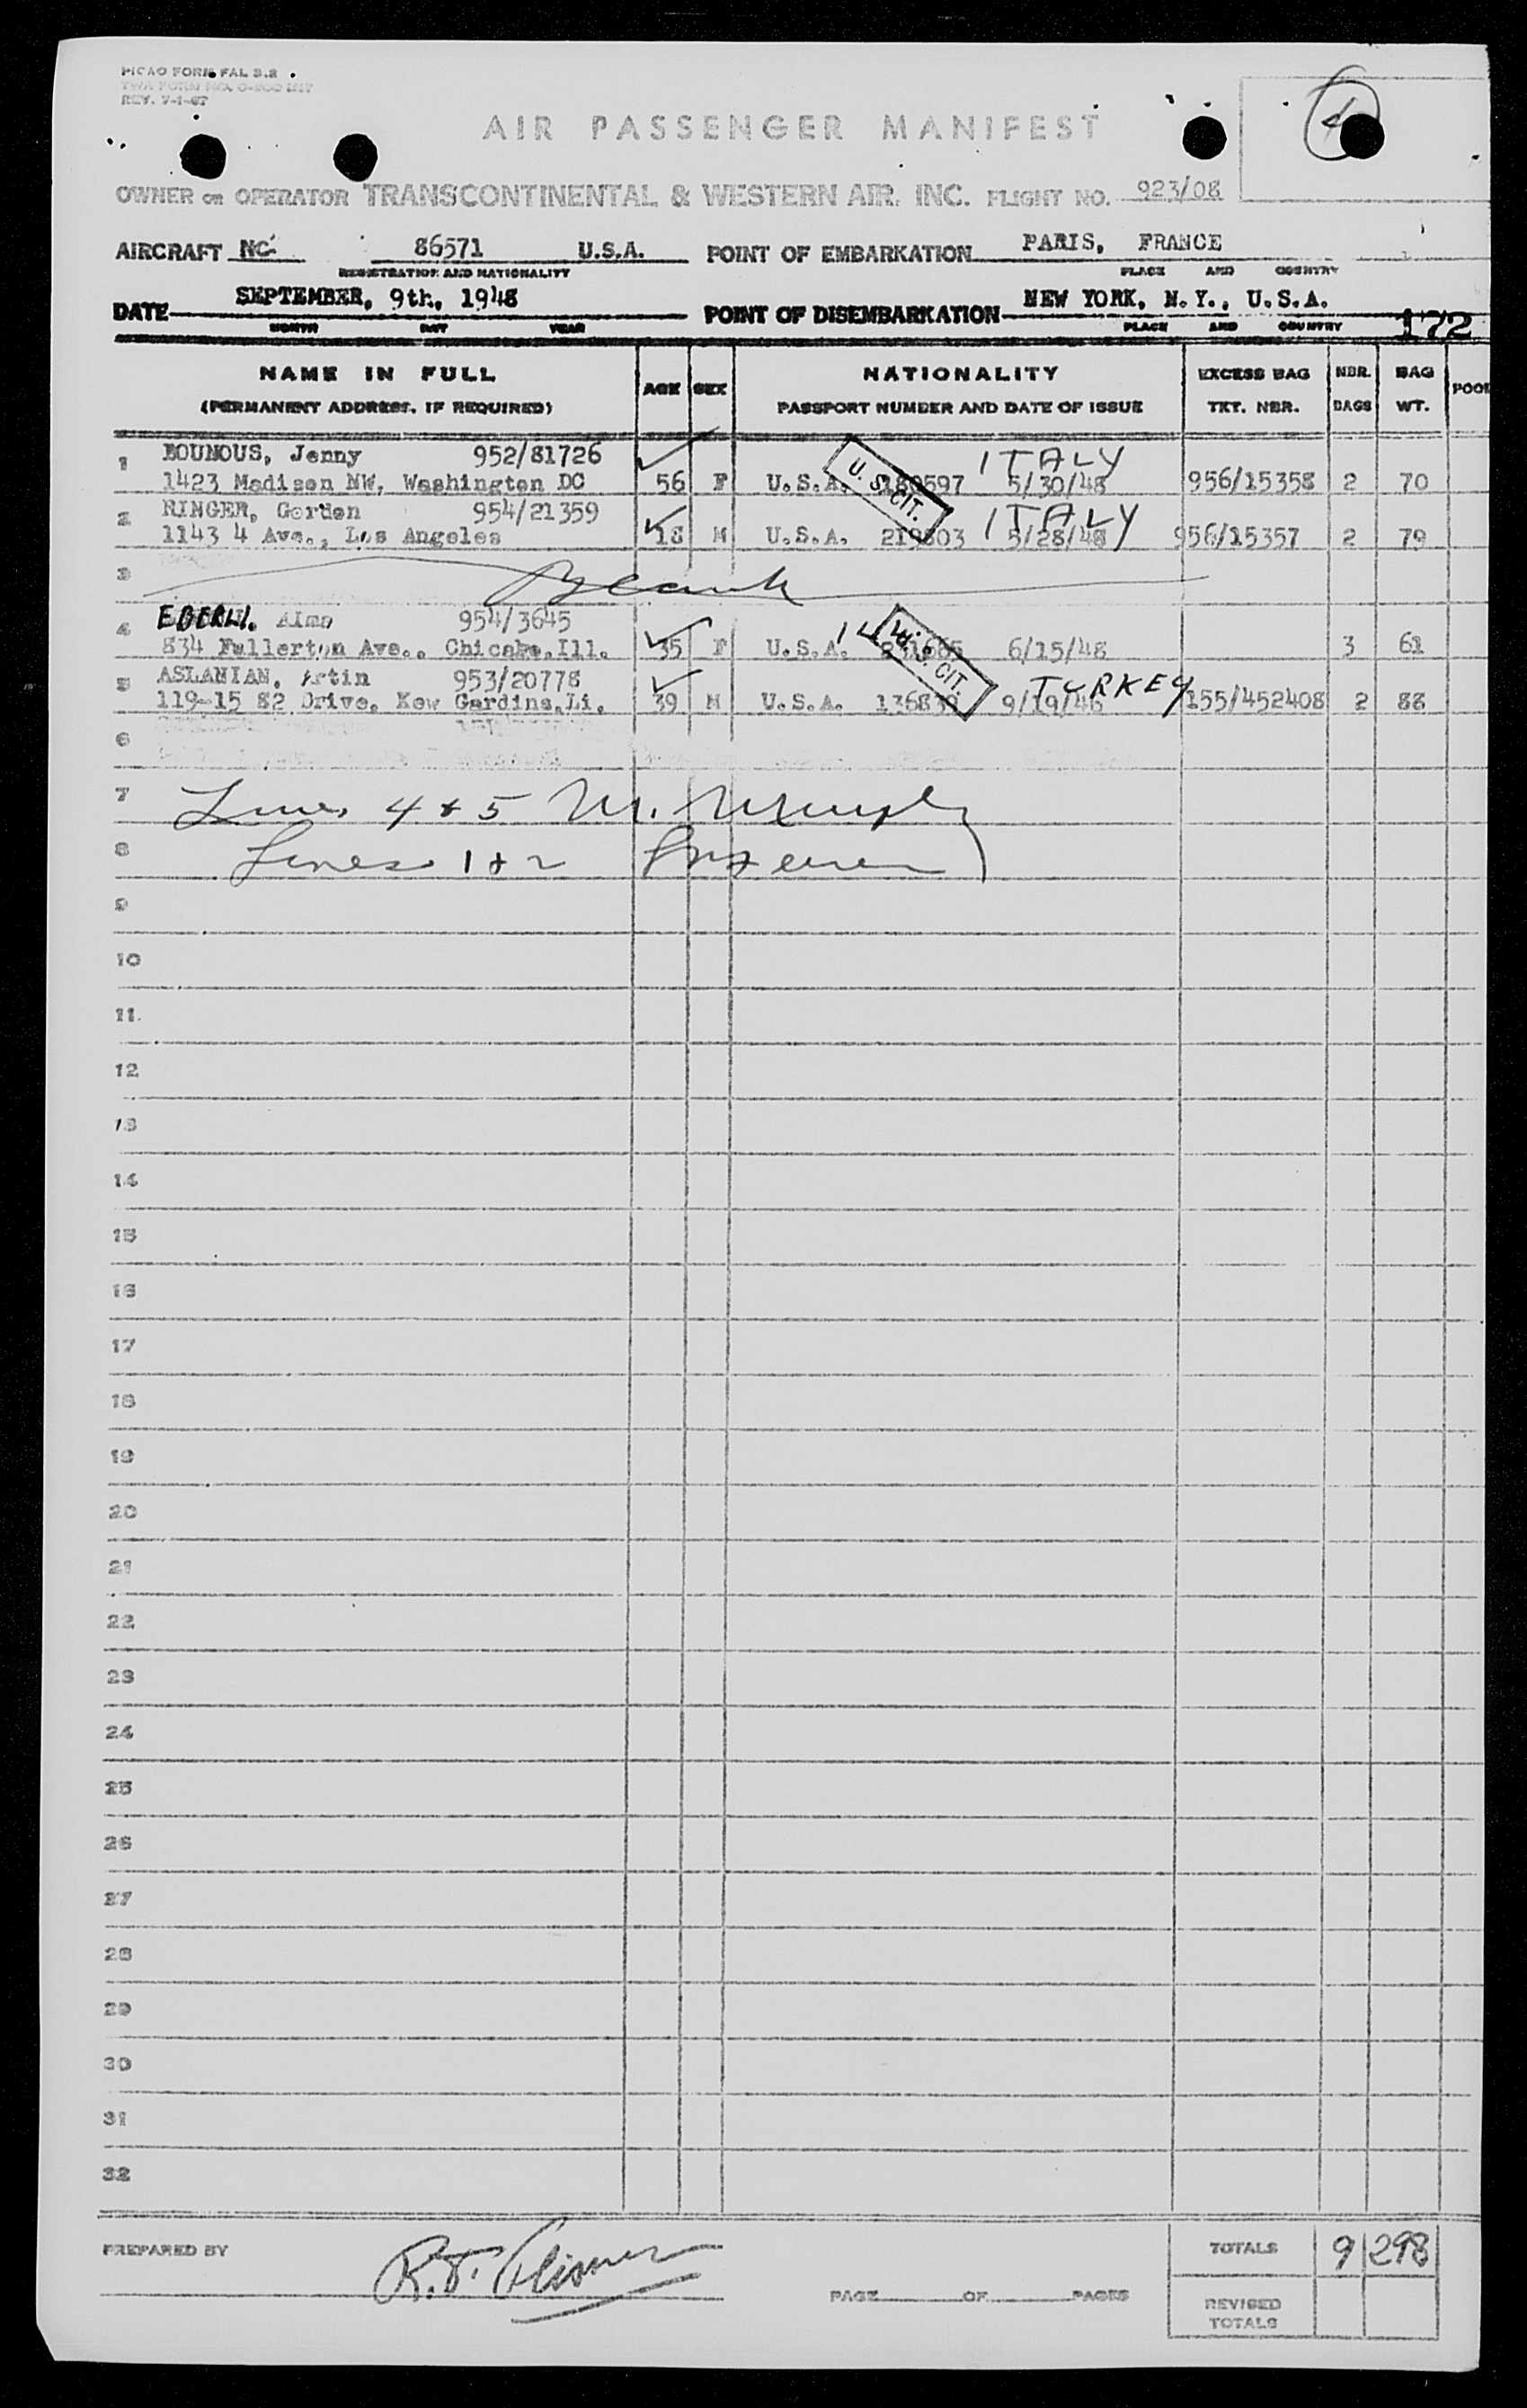 PICAO FORM FAL 3.2
REV. 7-1-47
4
AIR PASSENGER MANIFEST
OWNER OR OPERATOR TRANSCONTINENTAL & WESTERN AIR, INC. FLIGHT NO. 923/08
AIRCRAFT NC 86571 U.S.A. POINT OF EMBARKATION PARIS, FRANCE
REGISTRATION AND NATIONALITY PLACE AND COUNTRY
DATE SEPTEMBER, 9th, 1948 POINT OF DISEMBARKATION NEW YORK, N.Y., U.S.A.
MONTH DAY YEAR PLACE AND COUNTRY 172
NAME IN FULL AGE SEX NATIONALITY EXCESS BAG NBR. BAG POOL
(PERMANENT ADDRESS, IF REQUIRED) PASSPORT NUMBER AND DATE OF ISSUE TKT. NBR. BAGS WT.
1 BOUNOUS, Jenny 952/81726 ITALY
1423 Madison NW, Washington DC 56 F U.S.A. U.S. CIT. 5/30/48 956/15358 2 70
2 RINGER, Gorden 954/21359 ITALY
1143 4 Ave., Los Angeles 18 M U.S.A. 5/28/48 956/15357 2 79
3 Blank
4 EBERLI. Alma 954/3645
834 Fullerton Ave., Chicago, Ill. 35 F U.S.A. U.S. CIT. 6/15/48 3 61
5 ASLANIAN, Artin 953/20778 TURKEY
119-15 82 Drive, Kew Gardins, Li. 39 M U.S.A. 9/19/46 155/452408 2 88
6
7 Lines 4 & 5 M. Murphy
8 Lines 1 & 2
9
10
11.
12
13
14
15
16
17
18
19
20
21
22
23
24
25
26
27
28
29
30
31
32
PREPARED BY R.T. TOTALS 9 298
PAGE OF PAGES REVISED
TOTALS